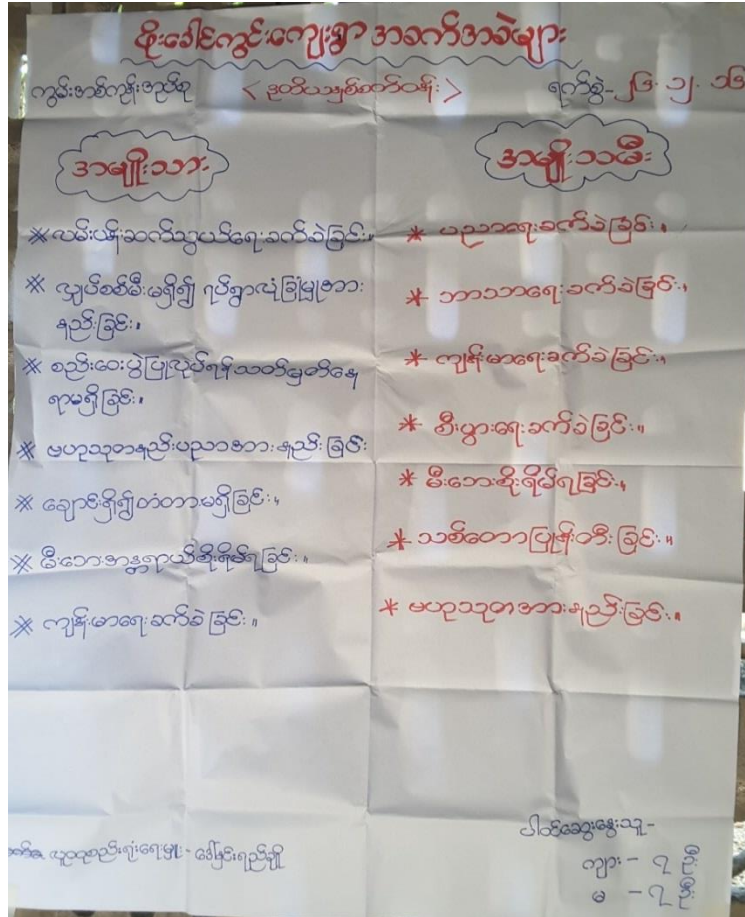 စိုးခေါင်ကွင်းကျေးရွာ အခက်အခဲများ
ကွမ်းတစ်ကုန်းအုပ်စု
<ဒုတိယနှစ်စတင်ပန်း>
ရက်စွဲ-၂၆.၁၂.၁၆
အမျိုးသား
※ လမ်းပန်းဆက်သွယ်ရေးခက်ခဲခြင်း။
※ လျှပ်စစ်မီးမရှိ၍ ရပ်ရွာလုံခြုံမှုအား
နည်းခြင်း။
※ စည်းဝေးပွဲပြုလုပ်ရန်သတ်မှတ်နေ
ရာမရှိခြင်း။
※ ဗဟုသုတနည်းပညာအားနည်းခြင်း
※ ချောင်းရှိ၍တံတားမရှိခြင်း။
※ မီးဘေးအန္တရာယ်စိုးရိမ်ရခြင်း။
※ ကျန်းမာရေးခက်ခဲခြင်း။
အမျိုးသမီး
* ပညာရေးခက်ခဲခြင်း။
* ဘာသာရေးခက်ခဲခြင်း။
* ကျန်းမာရေးခက်ခဲခြင်း။
* စီးပွားရေးခက်ခဲခြင်း။
* မီးဘေးစိုးရိမ်ရခြင်း။
* သစ်တောပြုန်းတီးခြင်း။
* ဗဟုသုတအားနည်းခြင်း။
လူထုစည်းရုံးရေးမှူး - ဒေါ်ခြင်းရည်ချို
ပါဝင်ဆွေးနွေးသူ-
ကျား - ၇ ဦး
မ - ၇ ဦး